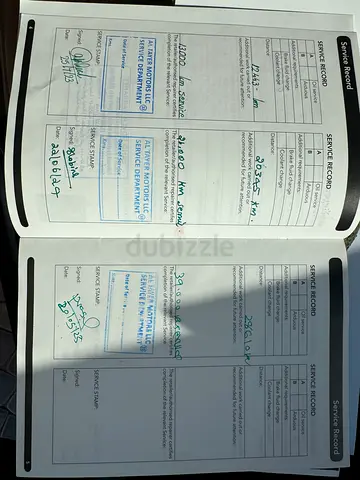 Service Record
SERVICE RECORD
A Oil service
B AdBlue
Additional requirements:
Brake fluid change
Coolant change
Distance:
Additional work carried out or
recommended for future attention:
The retailer/authorised repairer certifies
completion of the relevant Service:
AL TAYER MOTORS LLC
SERVICE DEPARTMENT
Date of Service
Km
SERVICE STAMP
Signed:
Date:
SERVICE RECORD
A Oil service
B AdBlue
Additional requirements:
Brake fluid change
Coolant change
Distance:
20345 km.
Additional work carried out or
recommended for future attention:
The retailer/authorised repairer certifies
completion of the relevant Service:
AL TAYER MOTORS LLC
SERVICE DEPARTMENT
Date of Service
SERVICE STAMP
Signed:
Date: 22/06/24
dubizzle
SERVICE RECORD
A Oil service
B AdBlue
Additional requirements:
Brake fluid change
Coolant change
Distance:
Additional work carried out or
recommended for future attention:
The retailer/authorised repairer certifies
completion of the relevant Service:
AL TAYER MOTORS LLC
SERVICE DEPARTMENT
Date of Service
SERVICE STAMP
Signed:
Date:
Service Record
SERVICE RECORD
A Oil service
B AdBlue
Additional requirements:
Brake fluid change
Coolant change
Distance:
Additional work carried out or
recommended for future attention:
The retailer/authorised repairer certifies
completion of the relevant Service:
SERVICE STAMP
Signed:
Date: